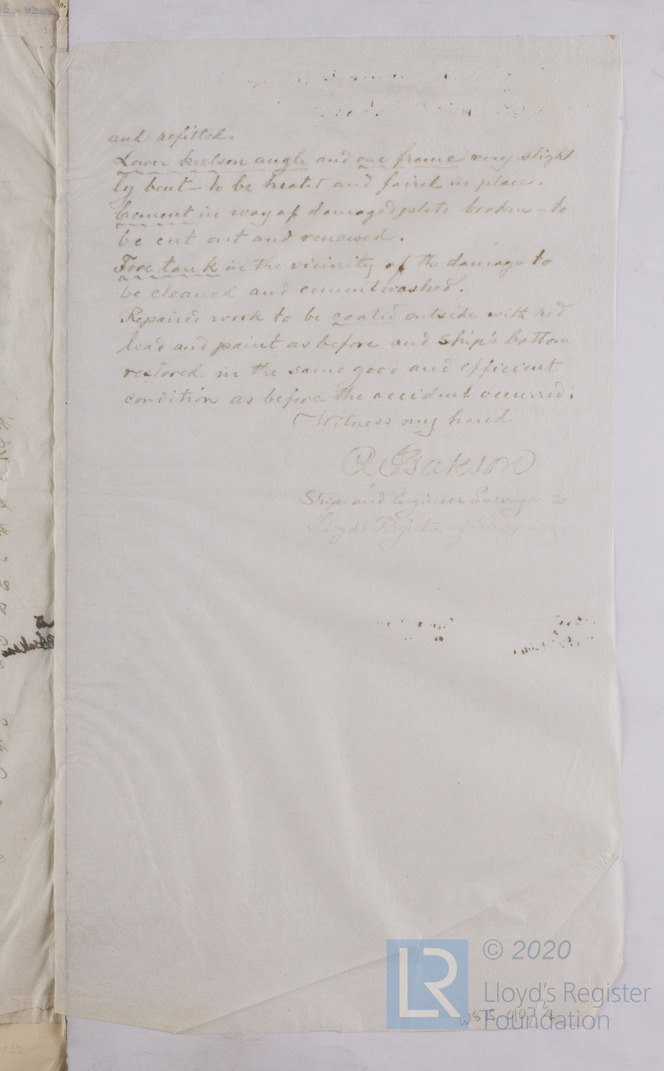 and refitted.
Lower keelson angle and one frame very slight
ly bent - to be heated and faired in place.
Cement in way of damaged plate broken - to
be cut out and renewed.
Fore tank in the vicinity of the damage to
be cleaned and cementwashed.
Repaired work to be coated outside with red
lead and paint as before and ship's bottom
restored in the same good and efficient
condition as before the accident occurred.
Witness my hand
Ship and Engineer Surveyor to
Lloyd's Register of Shipping
© 2020
LR
Lloyd's Register
Foundation